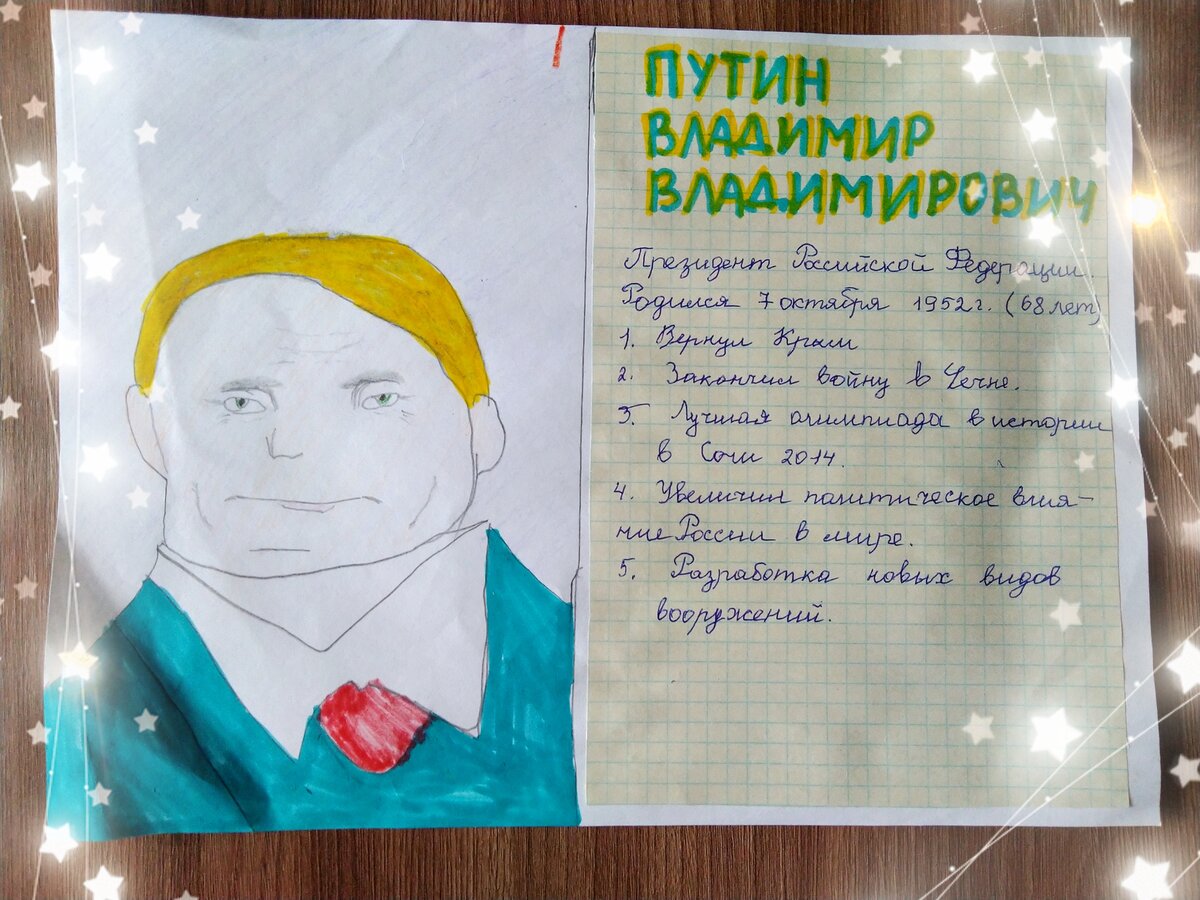 ПУТИН
ВЛАДИМИР
ВЛАДИМИРОВИЧ
Президент Российской Федерации.
Родился 7 октября 1952г. (68 лет)
1. Вернул Крым
2. Закончил войну в Чечне.
3. Лучшая олимпиада в истории
в Сочи 2014.
4. Увеличил политическое влия-
ние России в мире.
5. Разработка новых видов
вооружений.